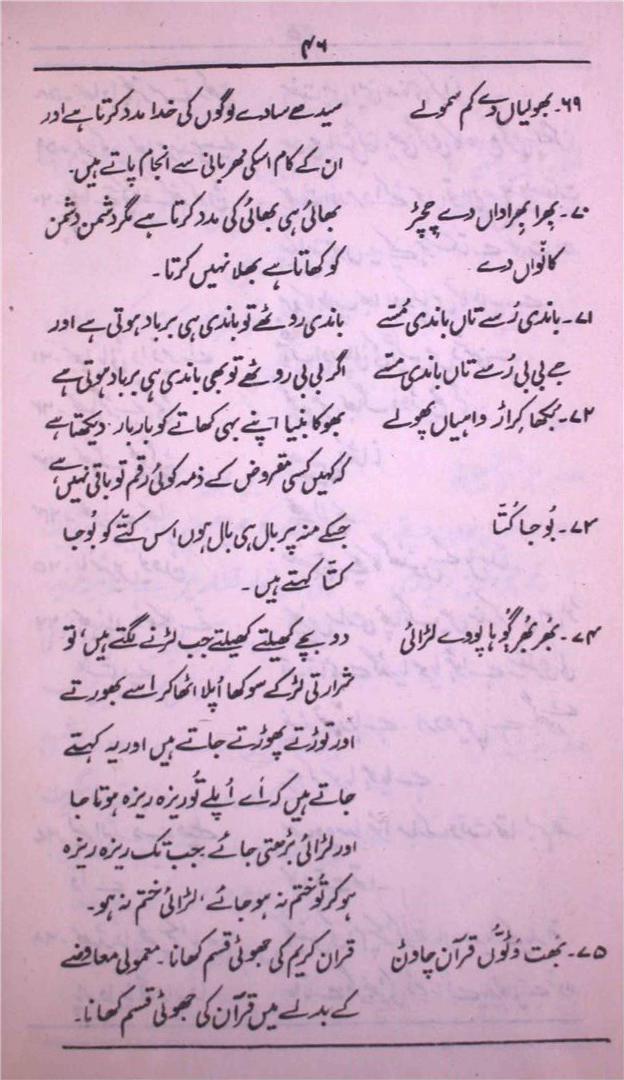 ۴۶
۶۹۔ بھولیاں دے کم سمولے سیدھے سادے لوگوں کی خدا مدد کرتا ہے اور
ان کے کام اسکی مہربانی سے انجام پاتے ہیں۔
۷۰۔ بھرا بھراواں دے چچڑ بھائی ہی بھائی کی مدد کرتا ہے مگر دشمن دشمن
کانواں دے کو کھاتا ہے بھلا نہیں کرتا۔
۷۱۔ باندی رُسے تاں باندی مُسے باندی روٹھے تو باندی ہی برباد ہوتی ہے اور
جے بی بی رُسے تاں باندی مُسے اگر بی بی روٹھے تو بھی باندی ہی برباد ہوتی ہے
۷۲۔ بُکھا کراڑ واہیاں پھولے بھوکا بنیا اپنے بہی کھاتے کو بار بار دیکھتا ہے
کہ کہیں کسی مقروض کے ذمہ کوئی رقم تو باقی نہیں ہے
۷۳۔ بُوجا کُتا جسکے منہ پر بال ہی بال ہوں اس کتے کو بُوجا
کتا کہتے ہیں۔
۷۴۔ بُھر بُھر گُوہا پووے لڑائی دو بچے کھیلتے کھیلتے جب لڑنے لگتے ہیں، تو
شرارتی لڑکے سوکھا اُپلا اٹھا کر اسے بھورتے
اور توڑتے پھوڑتے جاتے ہیں اور یہ کہتے
جاتے ہیں کہ اَے اُپلے تُو ریزہ ریزہ ہوتا جا
اور لڑائی بڑھتی جائے۔ جب تک ریزہ ریزہ
ہو کر تُو ختم نہ ہو جائے، لڑائی ختم نہ ہو۔
۷۵۔ بُھت وَلوں قرآن چاون قران کریم کی جھوٹی قسم کھانا۔ معمولی معاوضے
کے بدلے میں قرآن کی جھوٹی قسم کھانا۔